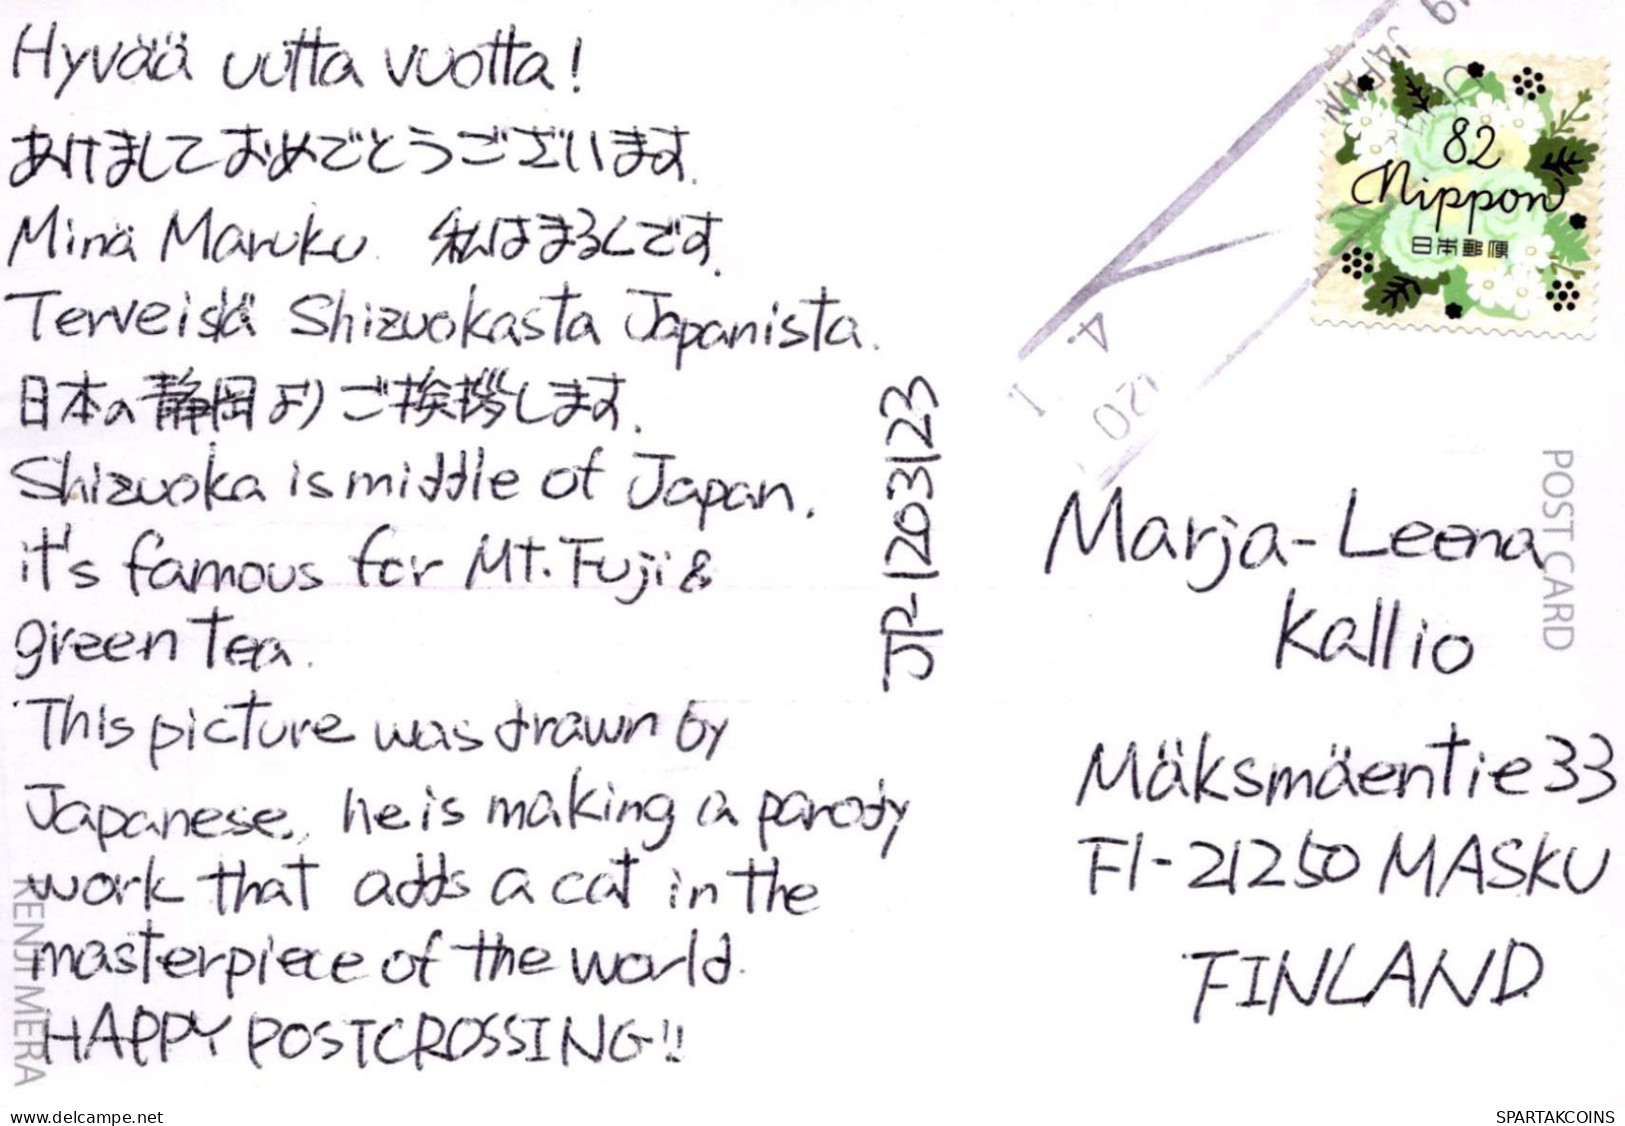 Hyvää uutta vuotta!
あけましておめでとうございます.
Minä Maruku. 私はまるくです.
Terveisiä Shizuokasta Japanista.
日本の静岡よりご挨拶します.
Shizuoka is middle of Japan.
it's famous for Mt. Fuji &
green tea.
This picture was drawn by
Japanese, he is making a parody
work that adds a cat in the
masterpiece of the world.
HAPPY POSTCROSSING!!
KENJI MERA
JP-1203123
JAPAN
82
Nippon
日本郵便
POST CARD
Marja-Leena
Kallio
Mäksmäentie 33
FI-21250 MASKU
FINLAND
delcampe.net
SPARTAKCOINS